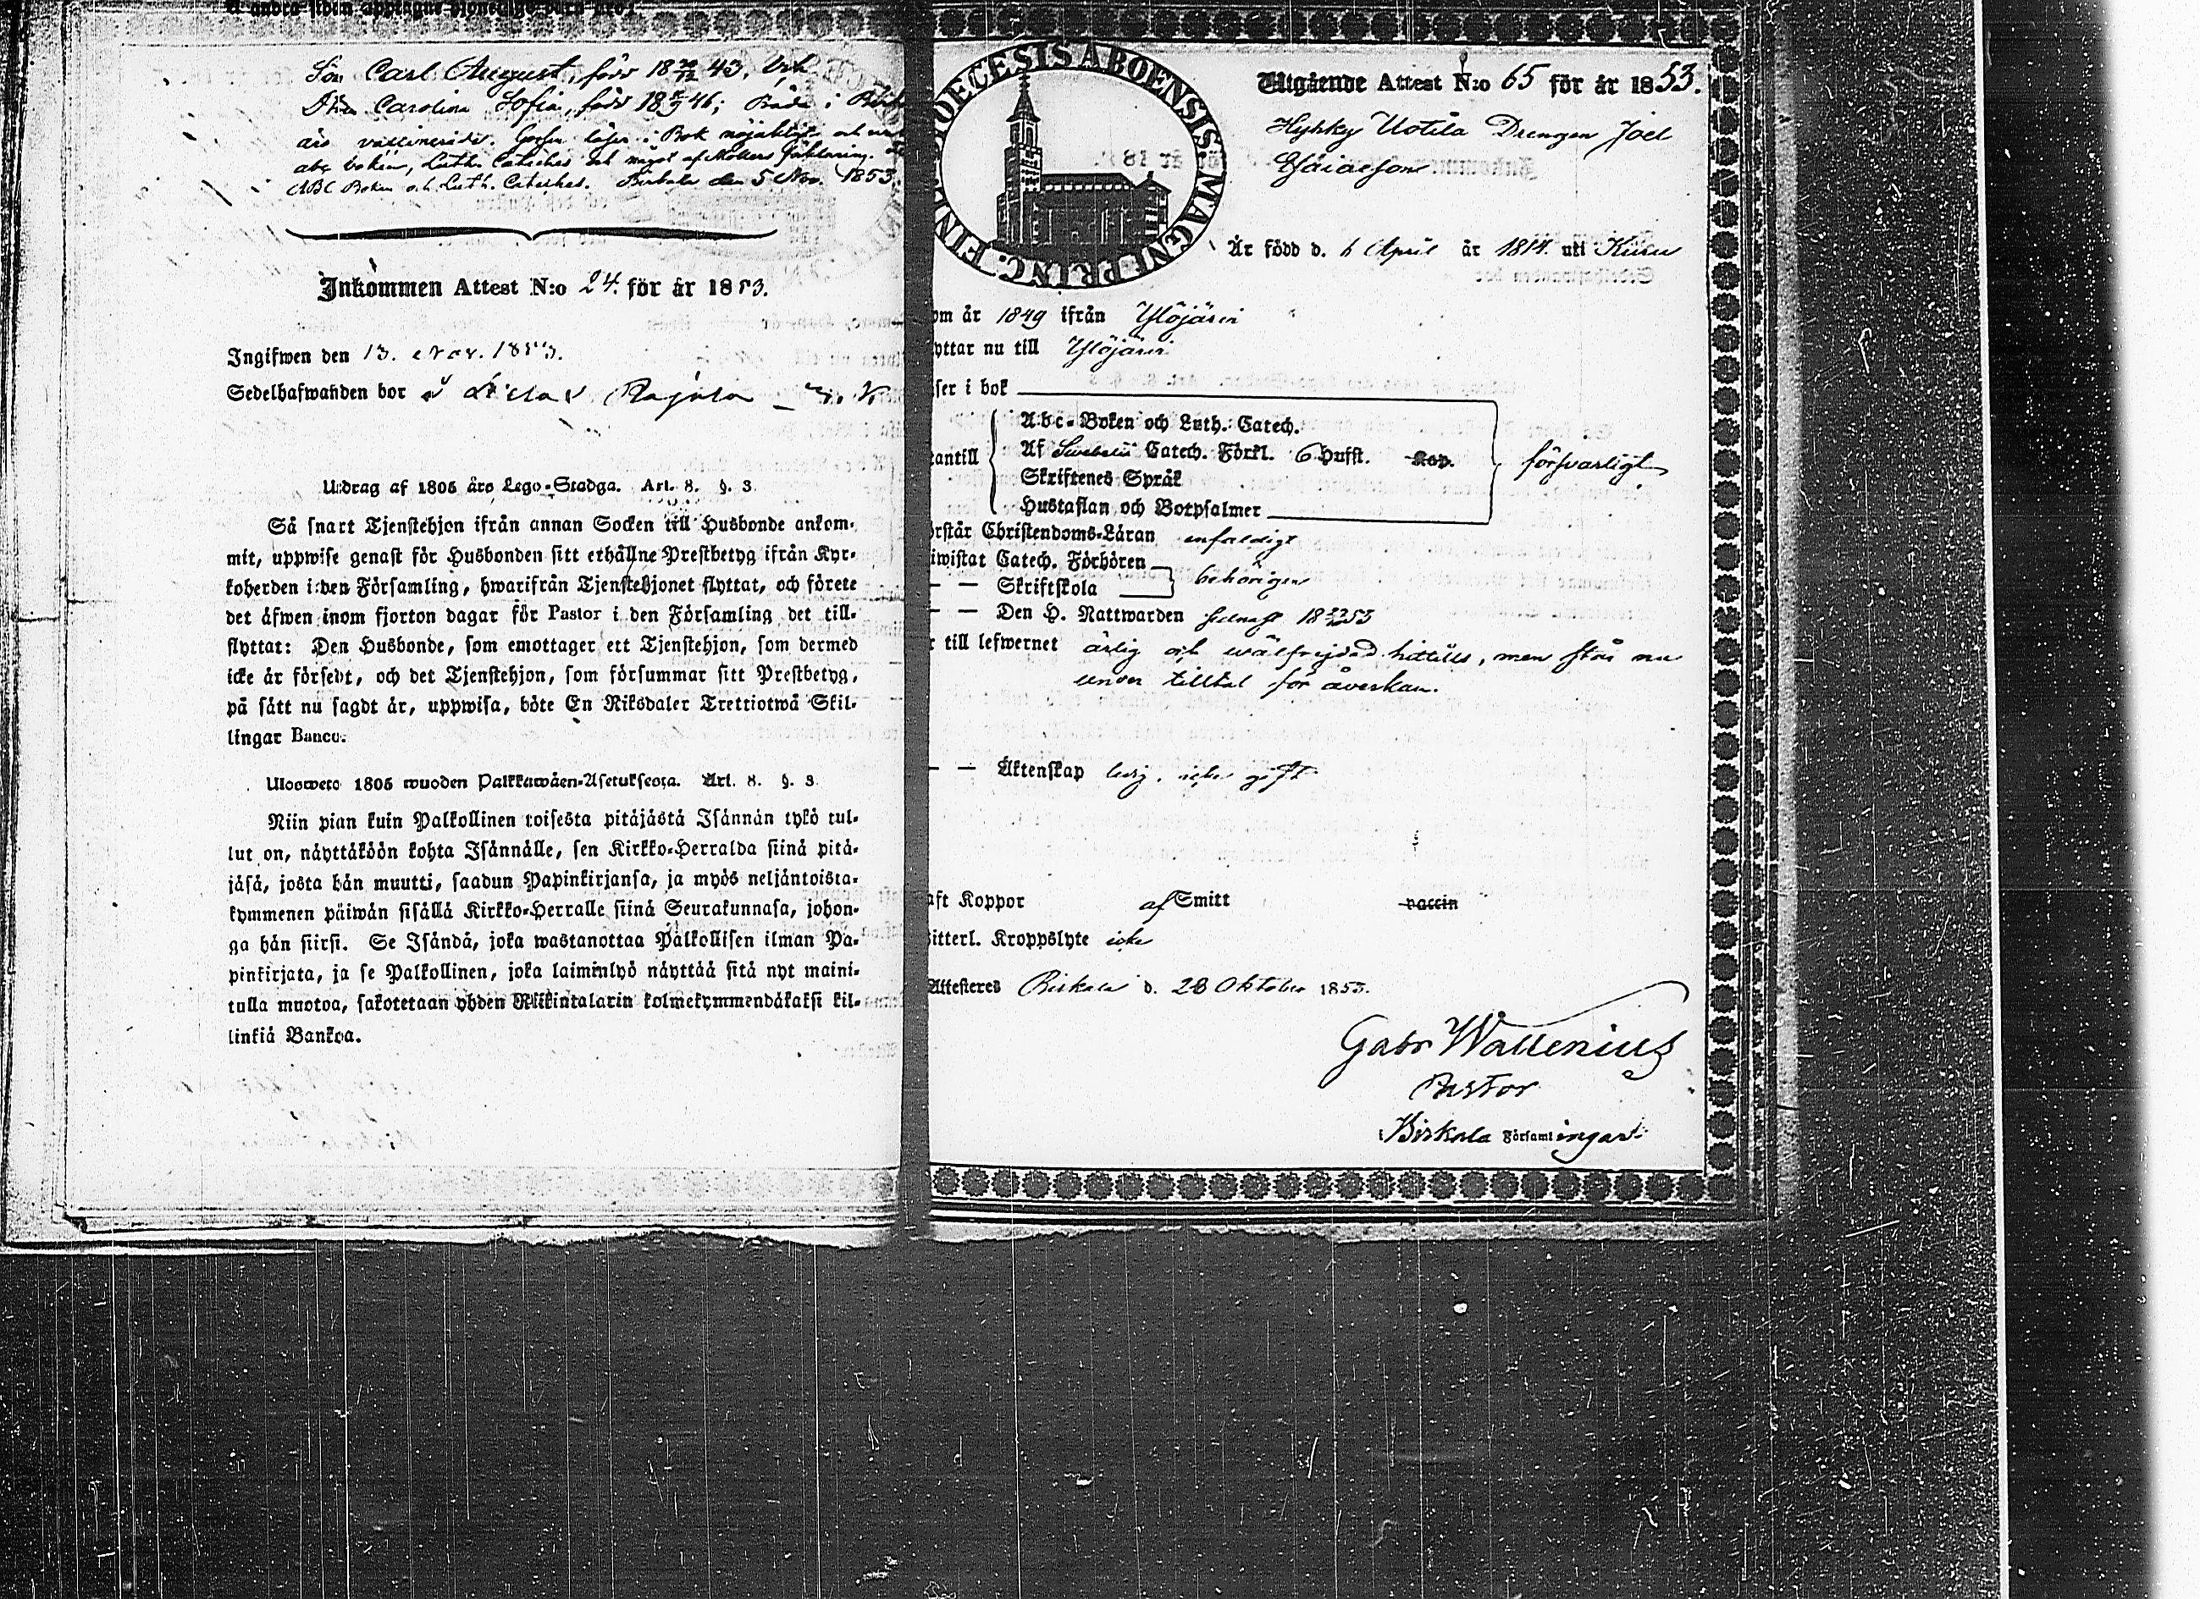 Å andra sidan upptagne hjonelags barn äro:
Son Carl August, född 18 43, och
Carolina Sofia, född 18 46; Både i
äro vaccinerade. Gossen läser i Bok nöjaktigt och
abc boken, Luth. Cateches och något af förklaring.
ABC Boken och Luth. Cateches. Birkala den 5 Nov. 1853.
Inkommen Attest N:o 24. för år 1853.
Ingifwen den 13. Nov. 1853.
Sedelhafwanden bor å Rajala
Utdrag af 1805 års Lego-Stadga. Art. 8. §. 3.
Så snart Tjenstehjon ifrån annan Socken till Husbonde ankom-
mit, uppwise genast för Husbonden sitt erhållne Prestbetyg ifrån Kyr-
koherden i den Församling, hwarifrån Tjenstehjonet flyttat, och förete
det äfwen inom fjorton dagar för Pastor i den Församling det till-
flyttat: Den Husbonde, som emottager ett Tjenstehjon, som dermed
icke är försedt, och det Tjenstehjon, som försummar sitt Prestbetyg,
på sätt nu sagdt är, uppwisa, böte En Riksdaler Trettiotwå Skil-
lingar Banco.
Ulosweto 1805 wuoden Palkkawäen-Asetuksesta. Art. 8. §. 3.
Niin pian kuin Palkollinen toisesta pitäjästä Isännän tykö tul-
lut on, näyttäköön kohta Isännälle, sen Kirkko-Herralda siinä pitä-
jäsä, josta hän muutti, saadun Papinkirjansa, ja myös neljäntoista-
kymmenen päiwän sisällä Kirkko-Herralle siinä Seurakunnasa, johon-
ga hän siirsi. Se Isändä, joka wastanottaa Palkollisen ilman Pa-
pinkirjata, ja se Palkollinen, joka laiminlyö näyttää sitä nyt maini-
tulla muotoa, sakotetaan yhden Riikintalarin kolmekymmendäkaksi kil-
linkiä Bankoa.
DIOECESIS ABOENSIS. MAGNI PRINC. FINL.
Utgående Attest N:o 65 för år 1853.
Hyhky Uotila Drengen Joel
Esaiaeson
Är född d. 6 April år 1814. uti Kuru
om år 1849 ifrån Ylöjärvi
yttar nu till Ylöjärvi
ser i bok
Abc-Boken och Luth. Catech.
antill Af Svebelii Catech. Förkl. 6 Hufst. Kap. försvarligt
Skriftenes Språk
Hustaflan och Botpsalmer
örstår Christendoms-Läran enfaldigt
iwistat Catech. Förhören
— Skriftskola behörigen
— — Den H. Nattwarden sednast 18 53
r till lefwernet ärlig och wälfrejdad hittills, men står nu
under tilltal för åverkan.
— — Äktenskap ledig, icke gift
aft Koppor af Smitt vaccin
itterl. Kroppslyte icke
Attesteres Birkala d. 28 Oktober 1853.
Gabr Wallenius
Pastor
i Birkala Församlingar